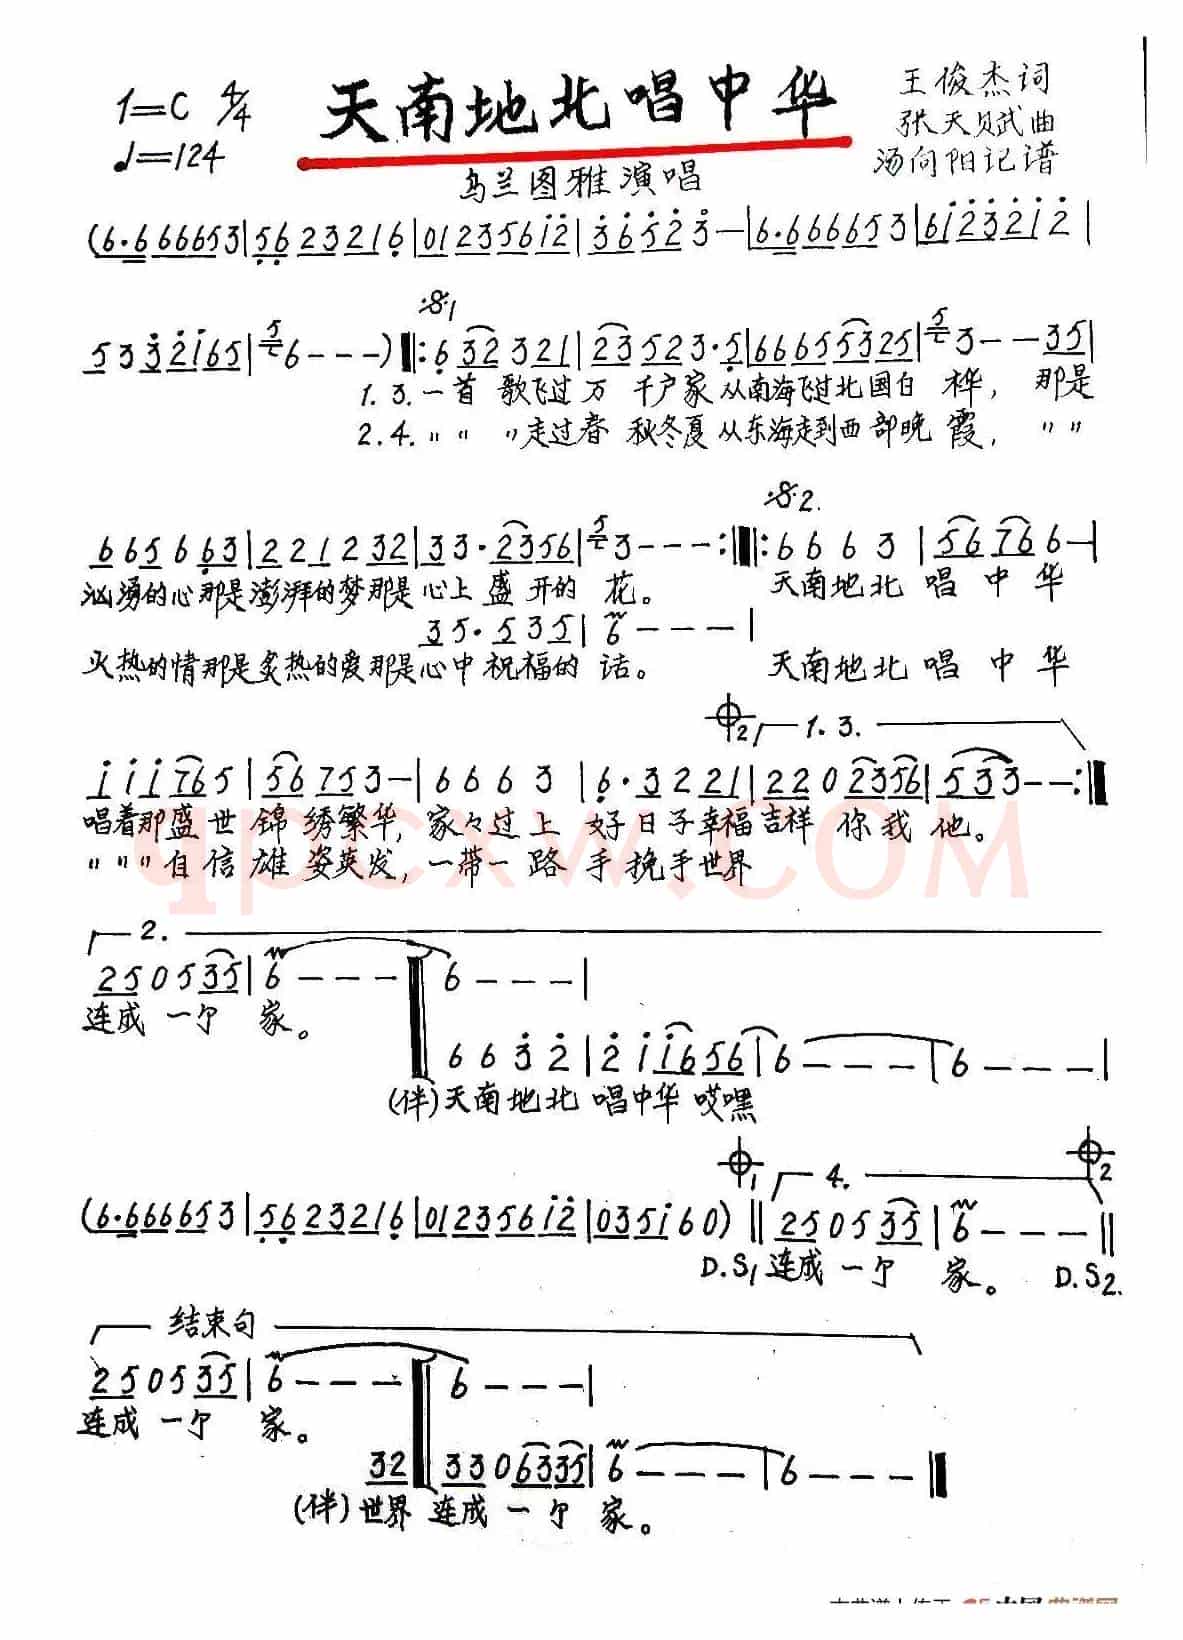 1=C 4/4 天南地北唱中华 王俊杰词
♩=124 张天赋曲
乌兰图雅演唱 汤向阳记谱
(6·6 666653|562321 6|0123561̇2̇|3̇6̇5̇2̇3̇—|6·6 666653|61̇2̇3̇2̇1̇2̇|
𝄋1
533̇2̇1̇65|⁵6---)‖:632321|23523·5|66655325|⁵3--35|
1. 3. 一首 歌飞过万 千户家 从南海飞过北国白 桦， 那是
2. 4. 〃 〃 〃走过春 秋冬夏 从东海走到西部晚 霞， 〃 〃
𝄋2.
665663|221232|33·2356|⁵3---:‖:6663|56766—|
汹湧的心那是澎湃的梦那是心上盛开的 花。 天南地北 唱 中 华
35·535|6---|
火热的情那是炙热的爱那是心中祝福的 话。 天南地北 唱 中 华
𝄌2 1. 3.
1̇1̇1̇765|56753—|6663|6·3221|2202356|533--:‖
唱着那盛世 锦绣繁华， 家々过上 好日子幸福吉祥 你我 他。
〃〃〃自信 雄姿英发， 一带一路 手挽手世界
qpcxw.COM
2.
250535|6---‖6---|
连成 一个 家。
663̇2̇|2̇1̇1̇656|6---|6---|
(伴)天南地北 唱中华 哎嘿
𝄌1 4. 𝄌2
(6·6 666653|562321 6|0123561̇2̇|0351̇60)‖250535|6---‖
D.S1 连成 一个 家。 D.S2.
结束句
250535|6---‖6---|
连成 一个 家。
32‖3306335|6---|6---‖
(伴)世界 连成 一个 家。